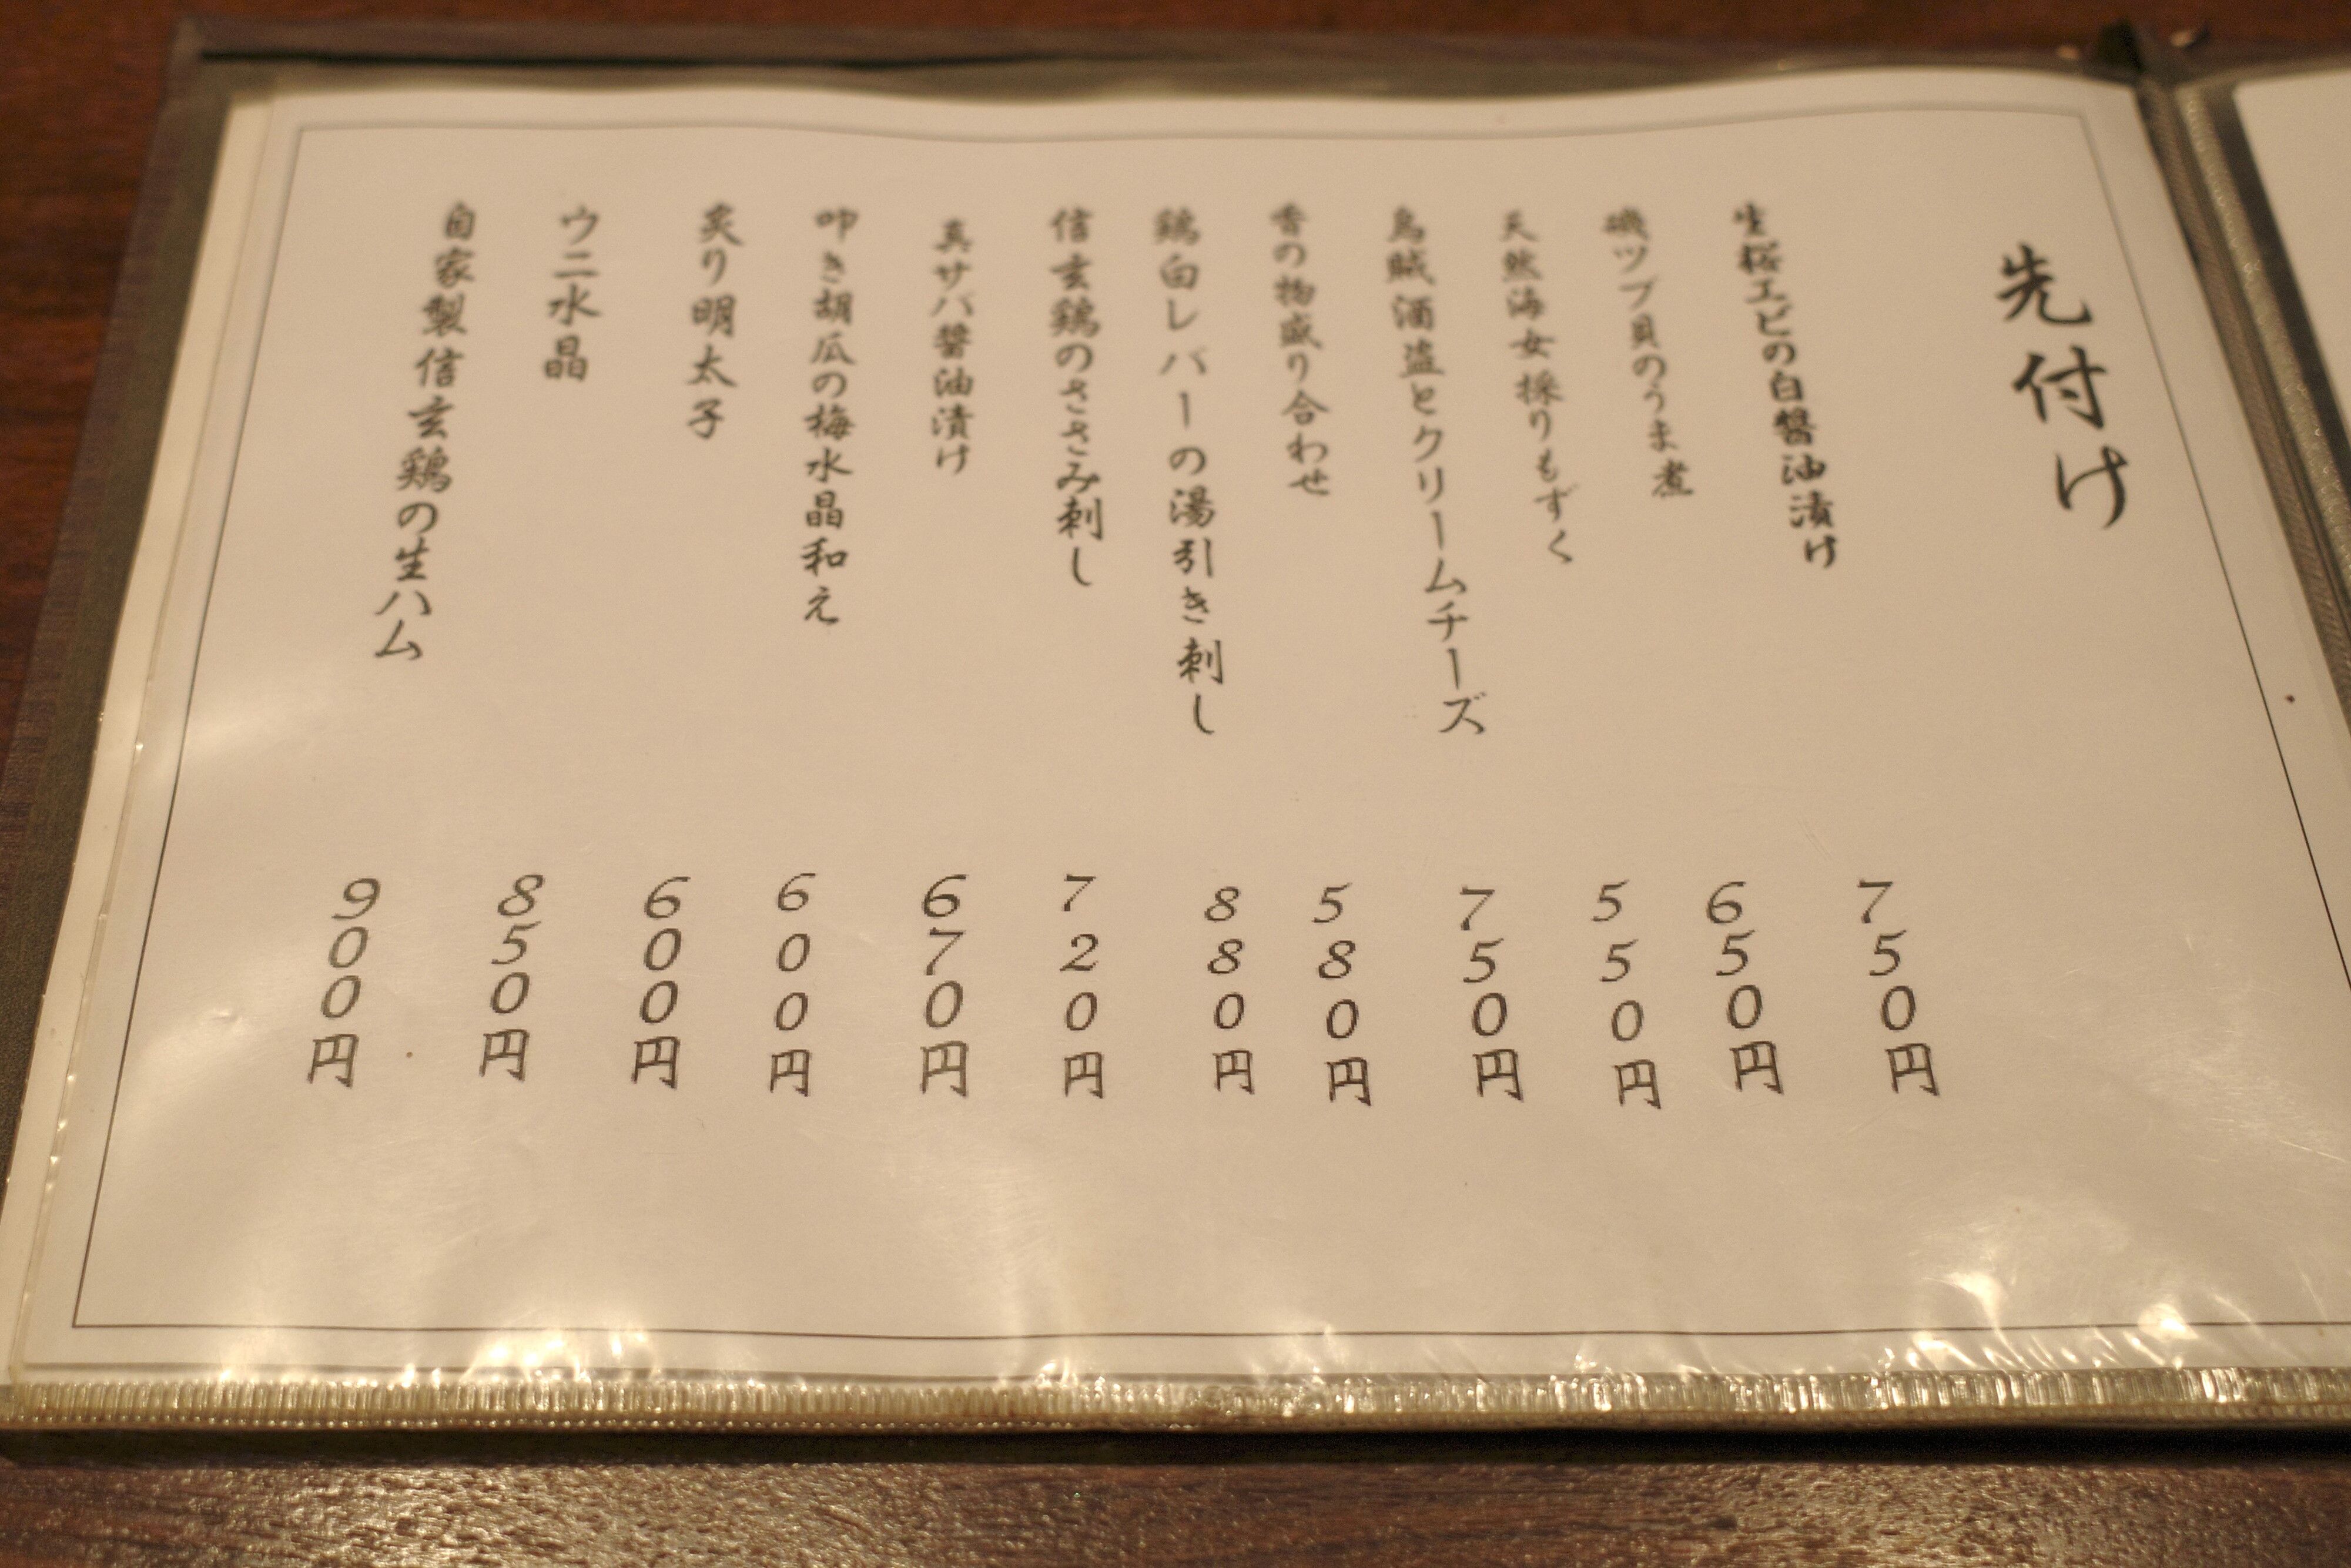 先付け
生桜エビの白醤油漬け
750円
磯ツブ貝のうま煮
650円
天然海女採りもずく
550円
烏賊酒盗とクリームチーズ
750円
香の物盛り合わせ
580円
鶏白レバーの湯引き刺し
880円
信玄鶏のささみ刺し
720円
真サバ醤油漬け
670円
叩き胡瓜の梅水晶和え
600円
炙り明太子
600円
ウニ水晶
850円
自家製信玄鶏の生ハム
900円